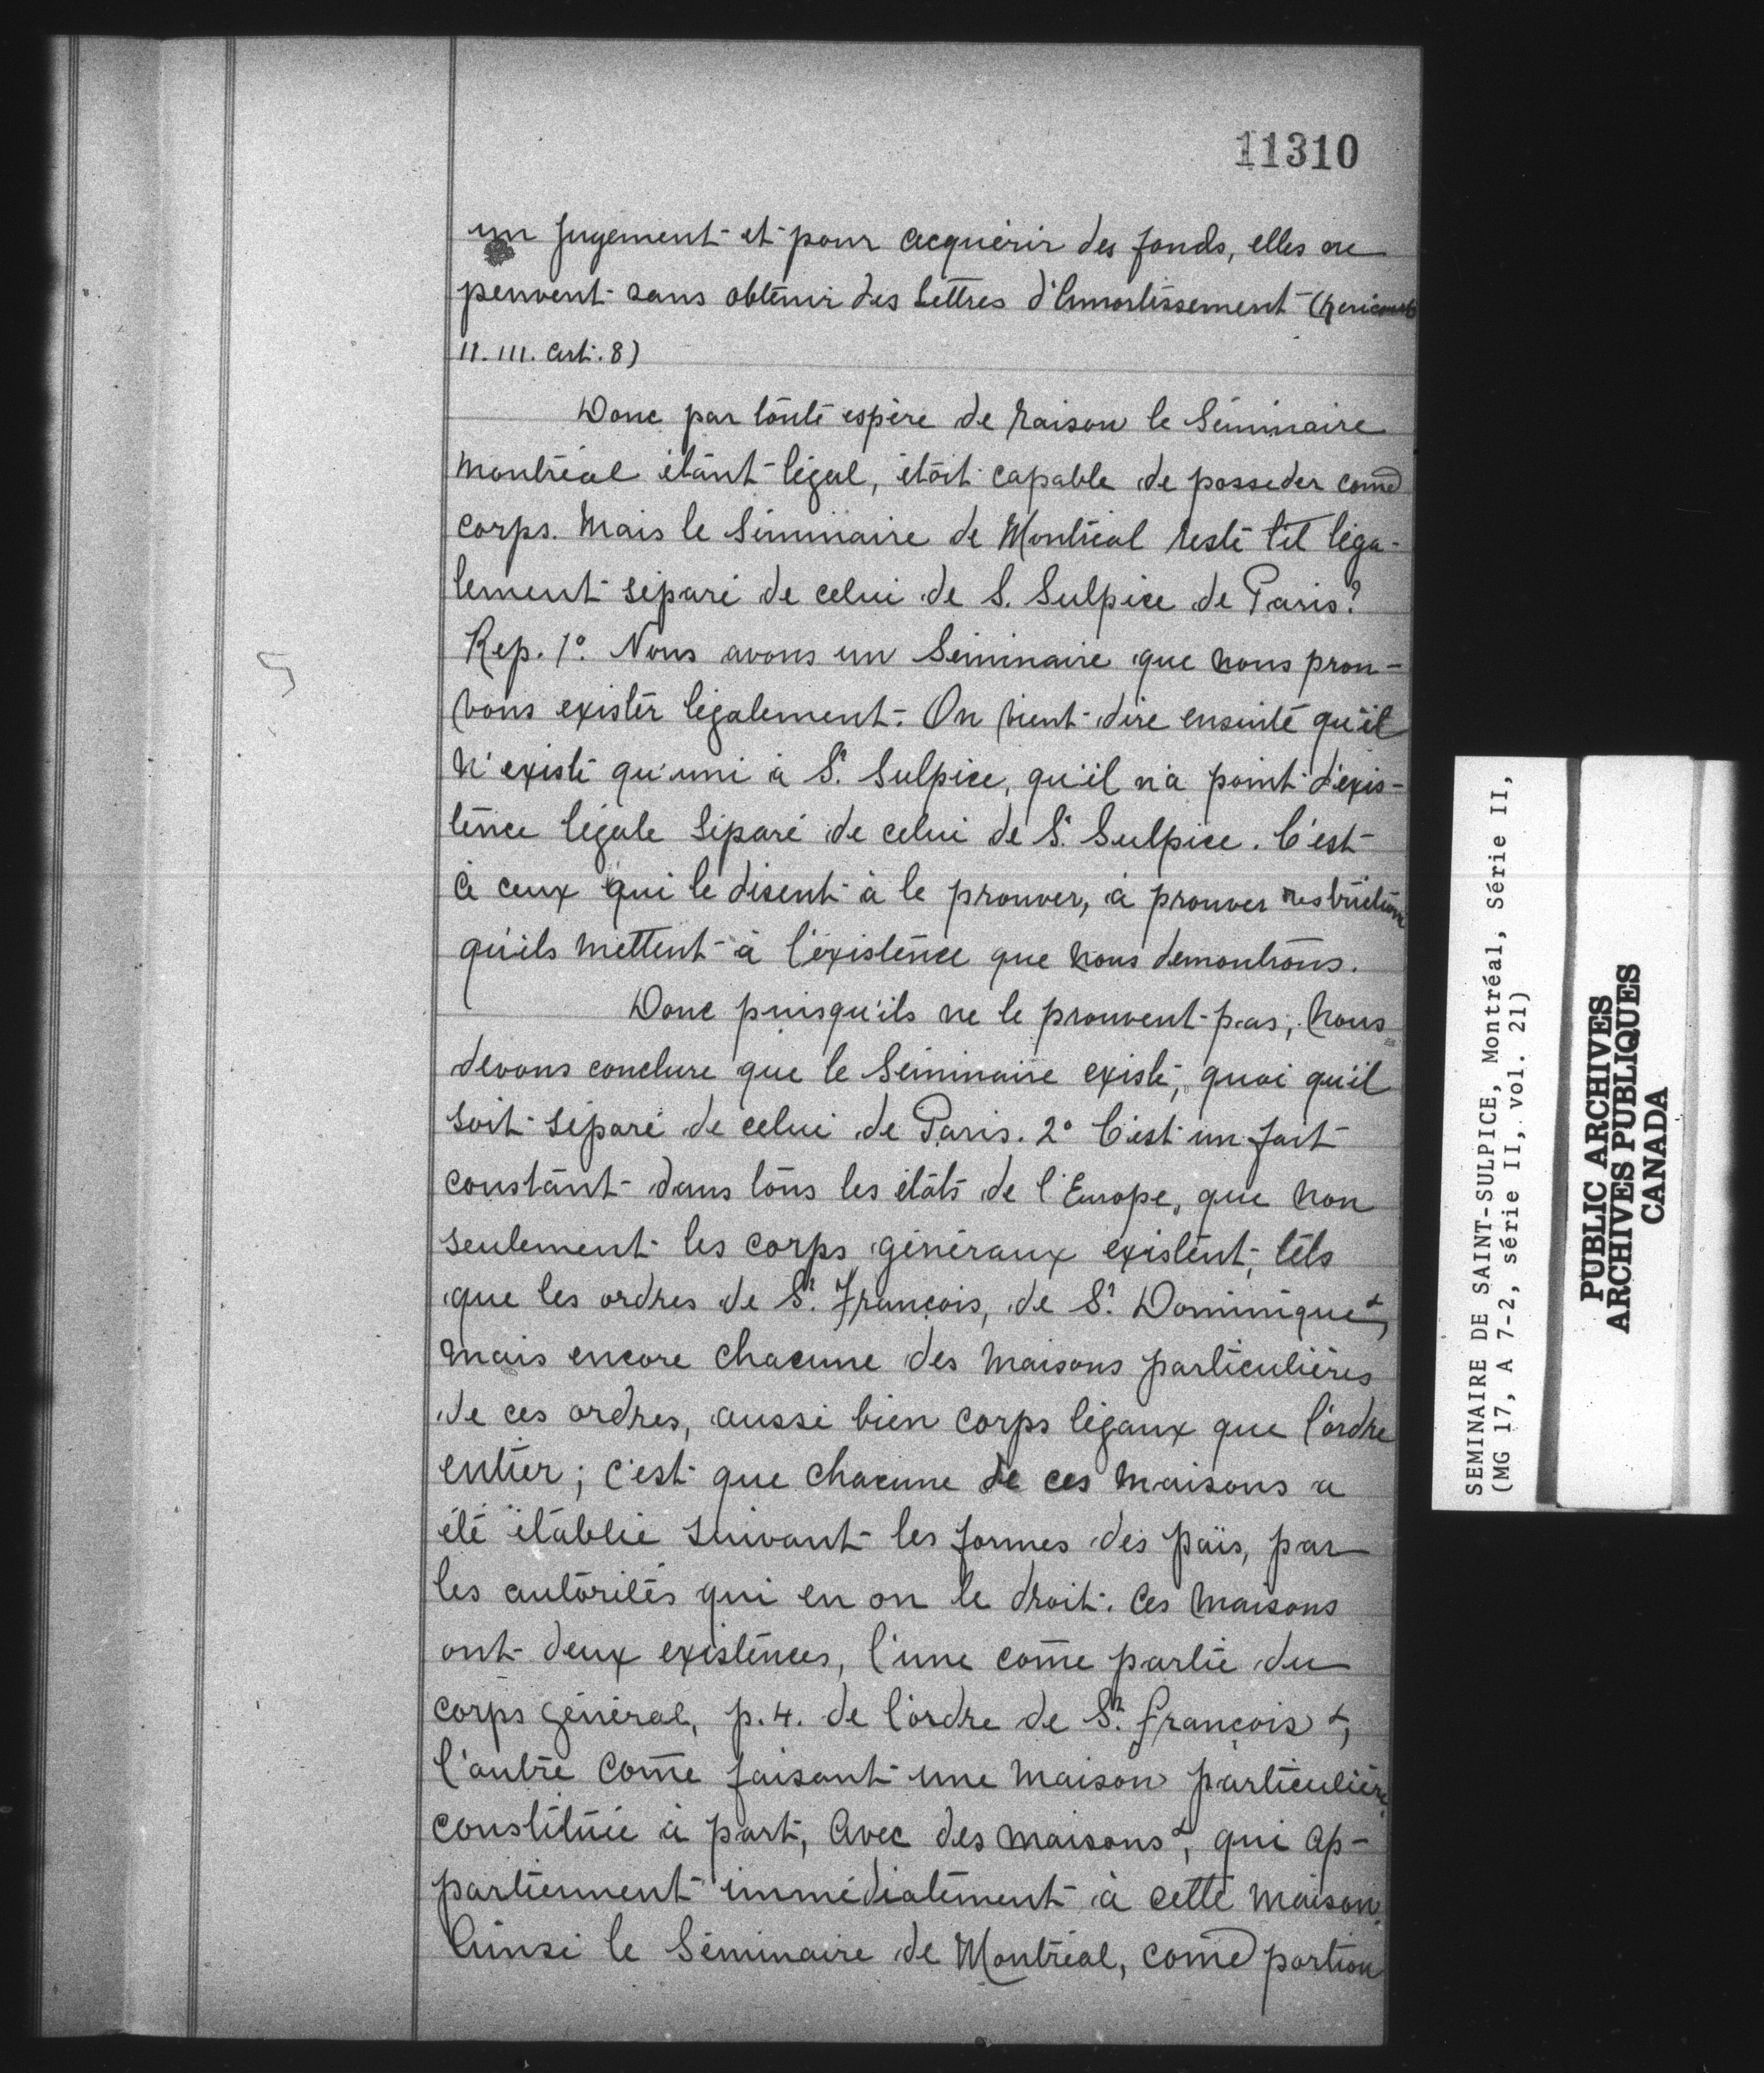 11310
un jugement et pour acquérir des fonds, elles ne
peuvent sans obtenir des lettres d'Amortissement (hericourt
II. III. art. 8)
Donc par toute espère de raison le Séminaire
Montréal étant légal, étoit capable de posseder come
corps. Mais le Séminaire de Montréal reste til léga-
lement séparé de celui de S. Sulpice de Paris?
Rep. 1° Nous avons un Séminaire que nous prou-
vons exister légalement. On vient dire ensuite qu'il
n'existe qu'uni à St. Sulpice, qu'il n'a point d'exis-
tence légale séparé de celui de St. Sulpice. C'est
à ceux qui le disent à le prouver, à prouver restriction
qu'ils mettent à l'existence que nous demontrons.
Donc puisqu'ils ne le prouvent pas, nous
devons conclure que le Séminaire existe, quoi qu'il
soit séparé de celui de Paris. 2° C'est un fait
constant dans tous les états de l'Europe, que non
seulement les corps généraux existent, tels
que les ordres de St. François, de St. Dominique &,
mais encore chacune des maisons particulières
de ces ordres, aussi bien corps légaux que l'ordre
entier; c'est que chacune de ces maisons a
été établie suivant les formes des païs, par
les autorités qui en on le droit. Ces maisons
ont deux existences, l'une come partie du
corps général, p. 4. de l'ordre de St. françois &,
l'autre come faisant une maison particulière
constituée à part, avec des maisons &, qui ap-
partiennent immédiatement à cette maison.
Ainsi le Séminaire de Montréal, come portion
5
SEMINAIRE DE SAINT-SULPICE, Montréal, Série II,
(MG 17, A 7-2, série II, vol. 21)
PUBLIC ARCHIVES
ARCHIVES PUBLIQUES
CANADA